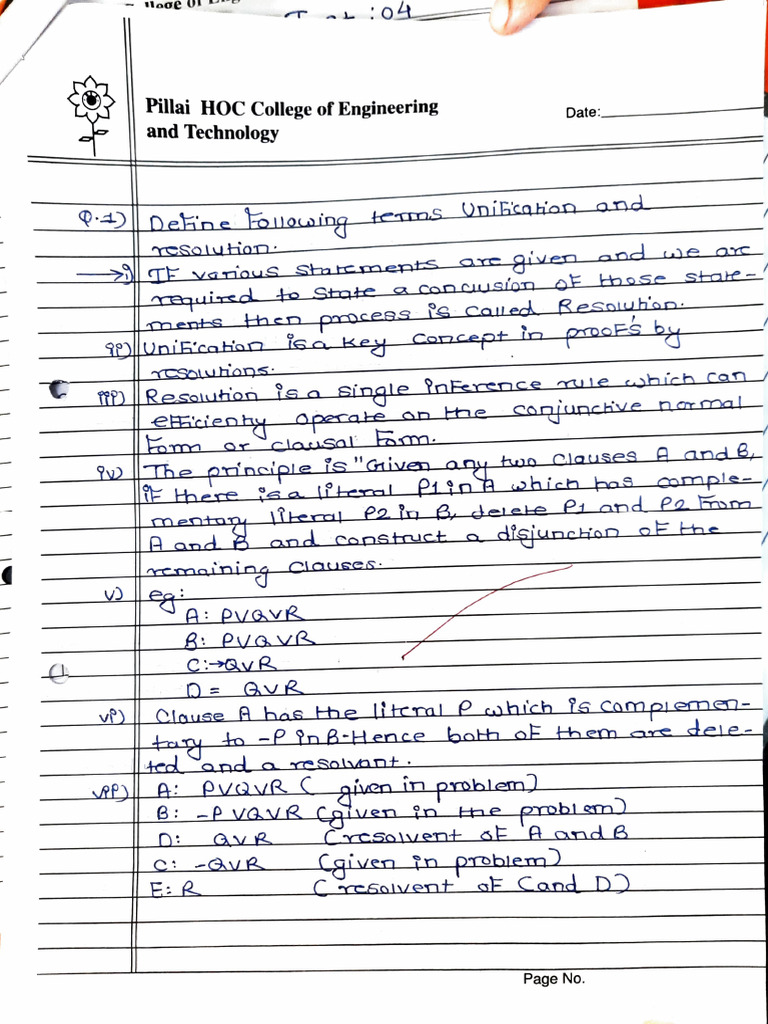 :04
Pillai HOC College of Engineering
and Technology
Date:
Q.1) Define Following terms Unification and
resolution.
→ i) IF various statements are given and we are
required to state a conclusion of those state-
ments then process is called Resolution.
ii) Unification is a key concept in proof's by
resolutions.
iii) Resolution is a single inference rule which can
efficiently operate on the conjunctive normal
form or clausal form.
iv) The principle is "Given any two clauses A and B,
if there is a literal P1 in A which has comple-
mentary literal P2 in B, delete P1 and P2 from
A and B and construct a disjunction of the
remaining clauses.
v) eg:
A: PVQVR
B: PVQVR
C:→QVR
D = QVR
vi) Clause A has the literal P which is complemen-
tary to -P in B-Hence both of them are dele-
ted and a resolvant.
vii) A: PVQVR ( given in problem)
B: -PVQVR (given in the problem)
D: QVR (resolvent of A and B
C: -QVR (given in problem)
E: R (resolvent of C and D)
Page No.